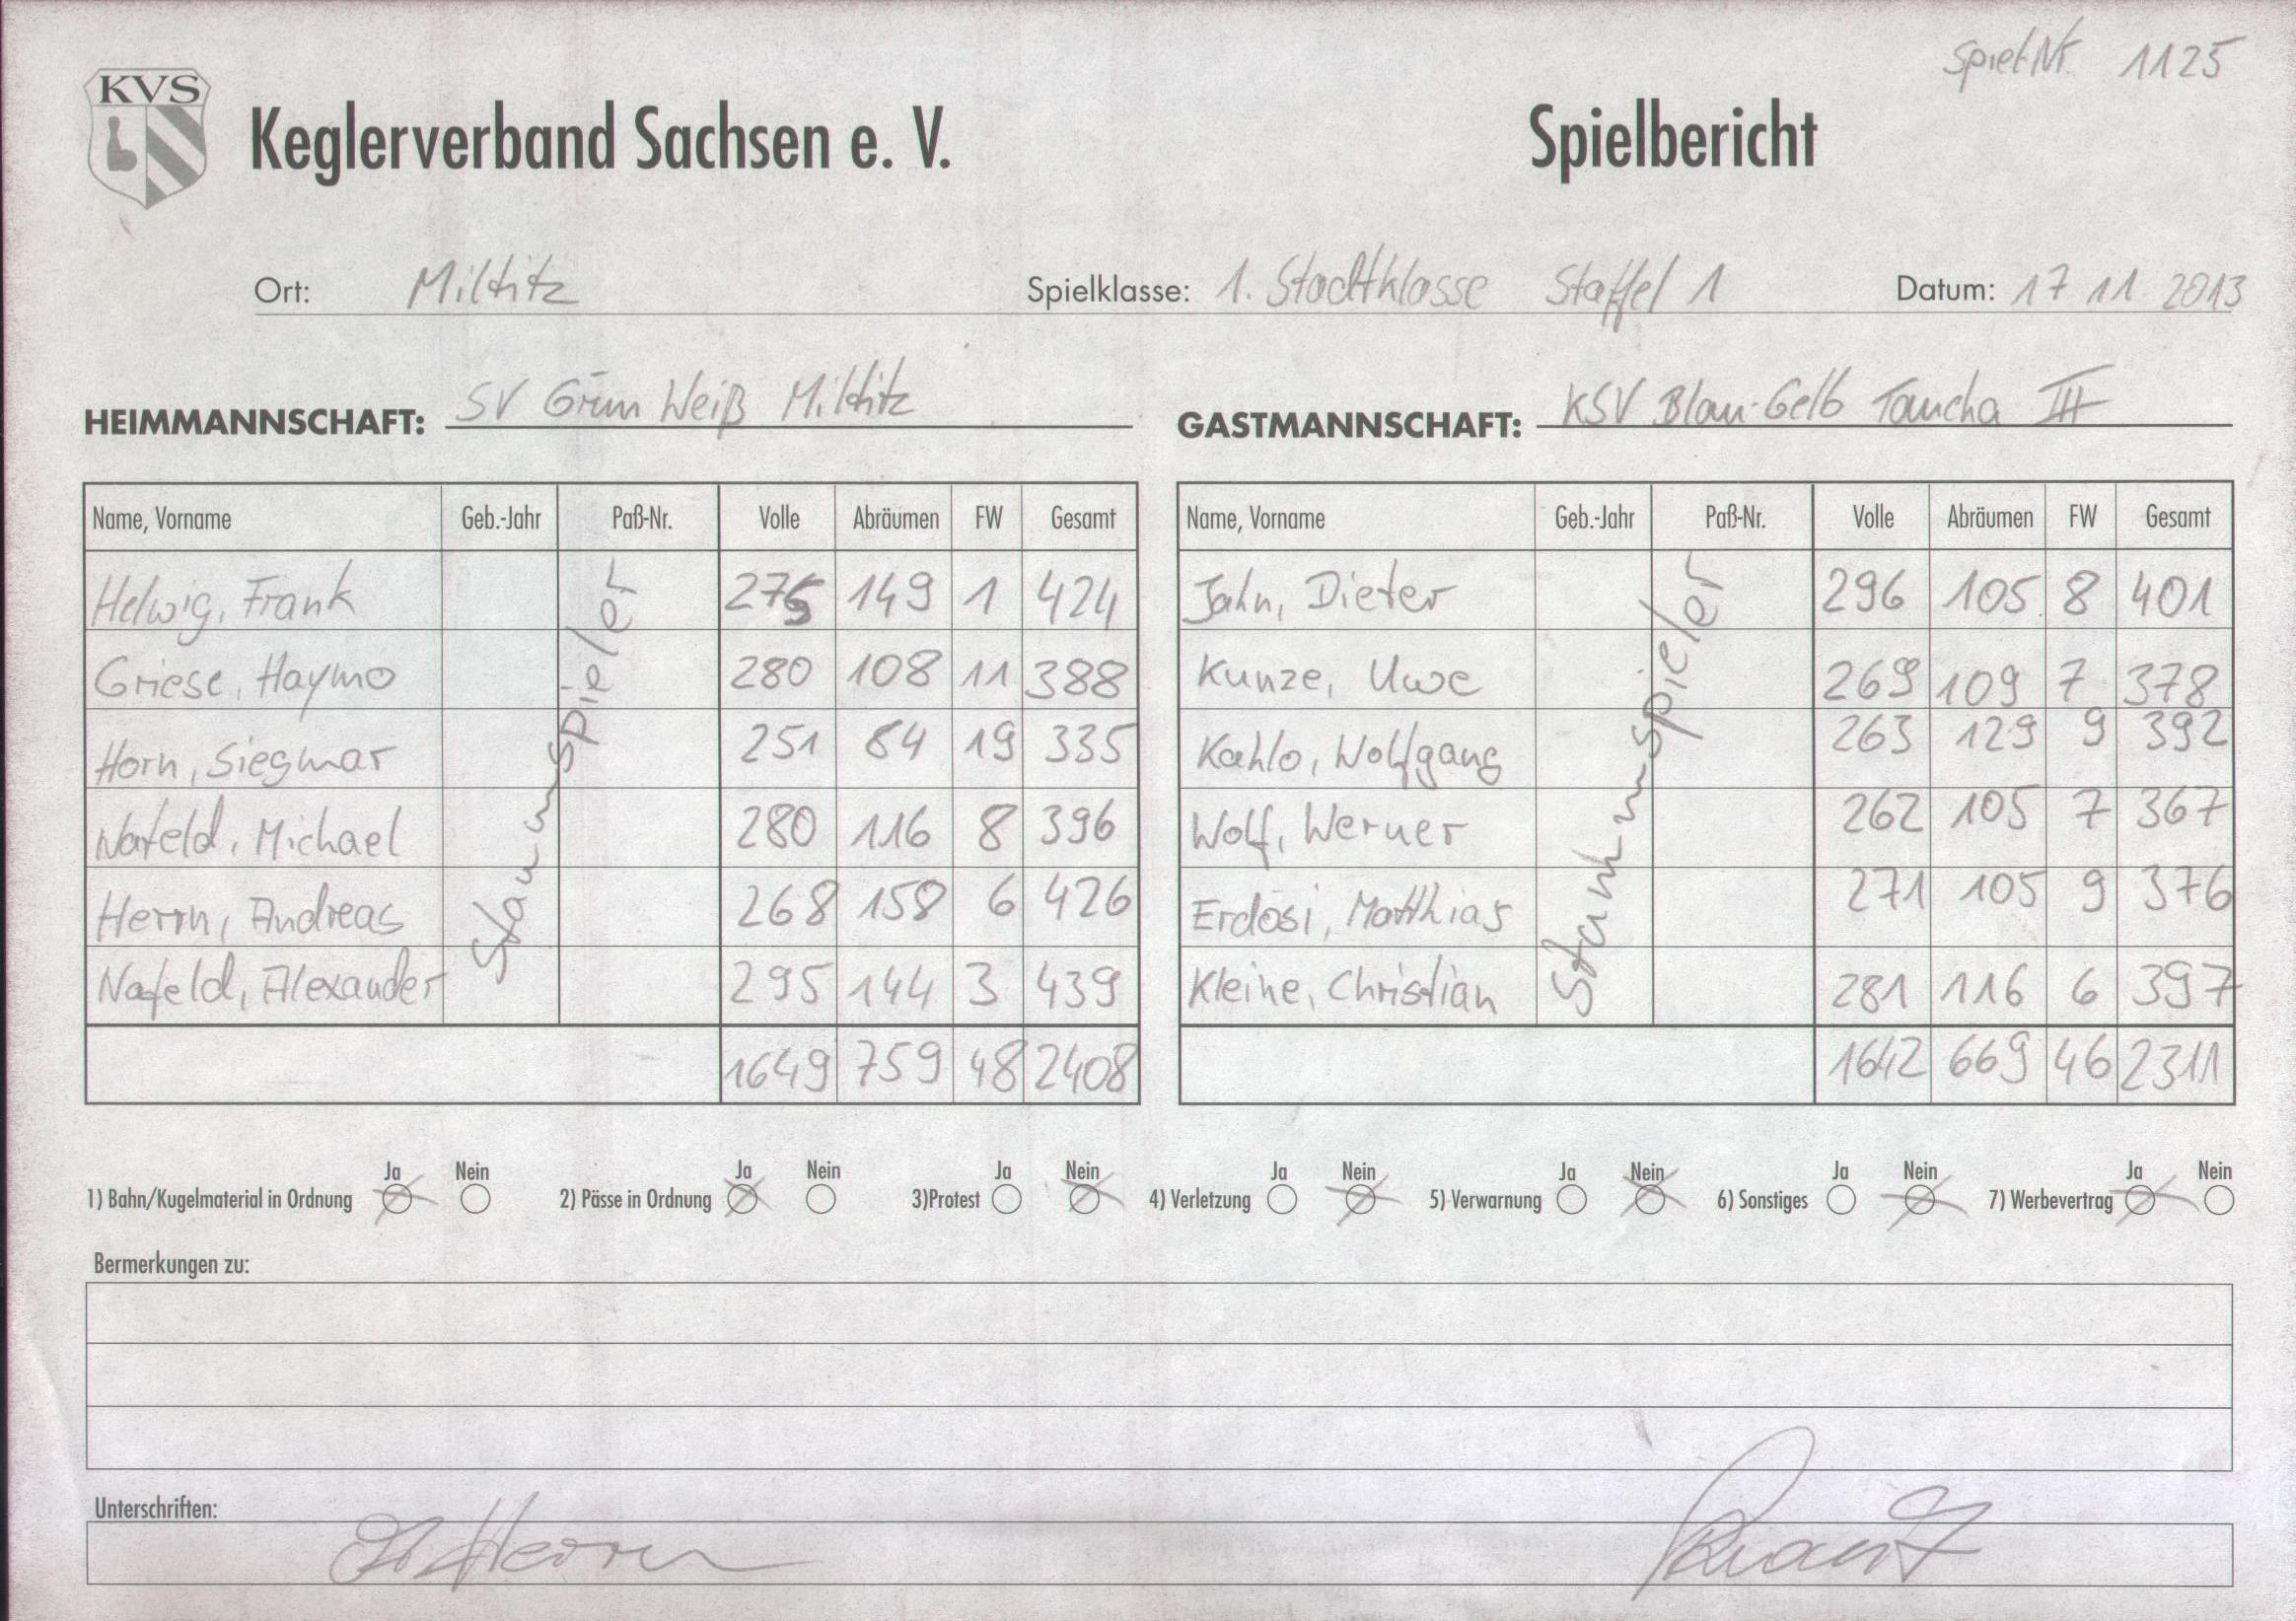 Spiel Nr. 1125
KVS
Keglerverband Sachsen e. V. Spielbericht
Ort: Miltitz Spielklasse: 1. Stadtklasse Staffel 1 Datum: 17 11. 2013
HEIMMANNSCHAFT: SV Grün Weiß Miltitz GASTMANNSCHAFT: KSV Blau-Gelb Taucha III
Name, Vorname Geb.-Jahr Paß-Nr. Volle Abräumen FW Gesamt Name, Vorname Geb.-Jahr Paß-Nr. Volle Abräumen FW Gesamt
Helwig, Frank 275 149 1 424 Jahn, Dieter 296 105 8 401
Griese, Haymo 280 108 11 388 Kunze, Uwe 269 109 7 378
Horn, Siegmar 251 84 19 335 Kahlo, Wolfgang 263 129 9 392
Michael 280 116 8 396 Wolf, Werner 262 105 7 367
Herrn, Andreas 268 158 6 426 Erdösi, Matthias 271 105 9 376
Alexander 295 144 3 439 Kleine, Christian 281 116 6 397
Stammspieler Stammspieler
1649 759 48 2408 1642 669 46 2311
Ja Nein Ja Nein Ja Nein Ja Nein Ja Nein Ja Nein Ja Nein
1) Bahn/Kugelmaterial in Ordnung 2) Pässe in Ordnung 3)Protest 4) Verletzung 5) Verwarnung 6) Sonstiges 7) Werbevertrag
Bermerkungen zu:
Unterschriften:
Herrn